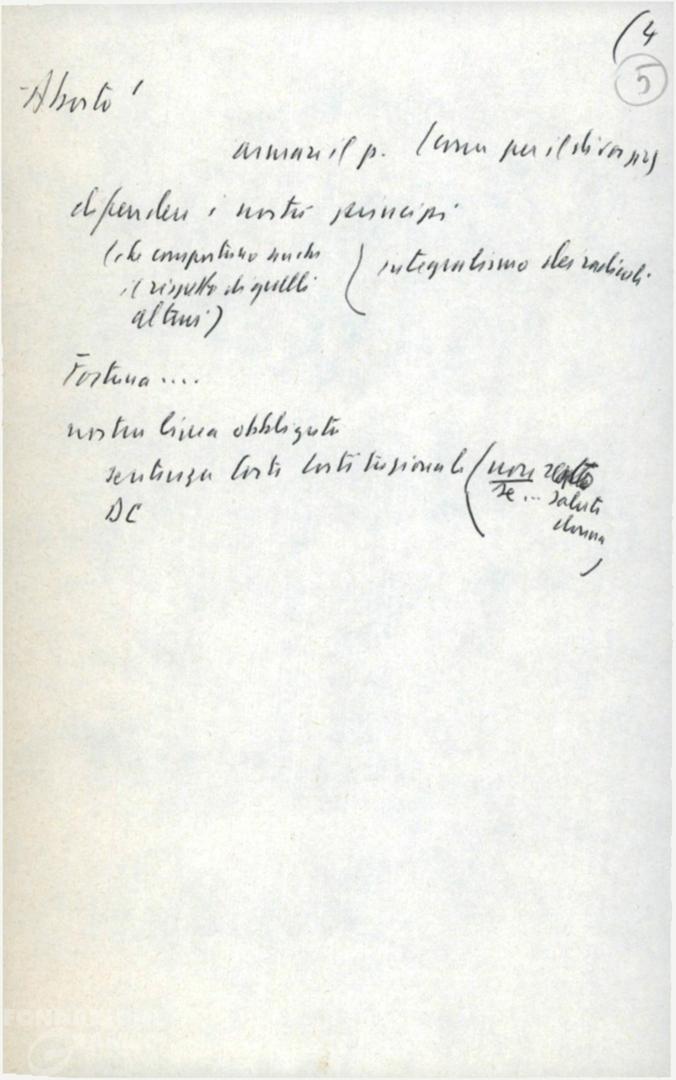 (4
5
- Aborto'
armare il p. (come per il divorzio)
difendere i nostri principi
(che comportano anche
il rispetto di quelli
altrui)
(integralismo dei radicali
Fortuna....
nostra linea obbligata
sentenza Corte Costituzionale (non
se ... salute
donna
)
DC
FONDAZIONE